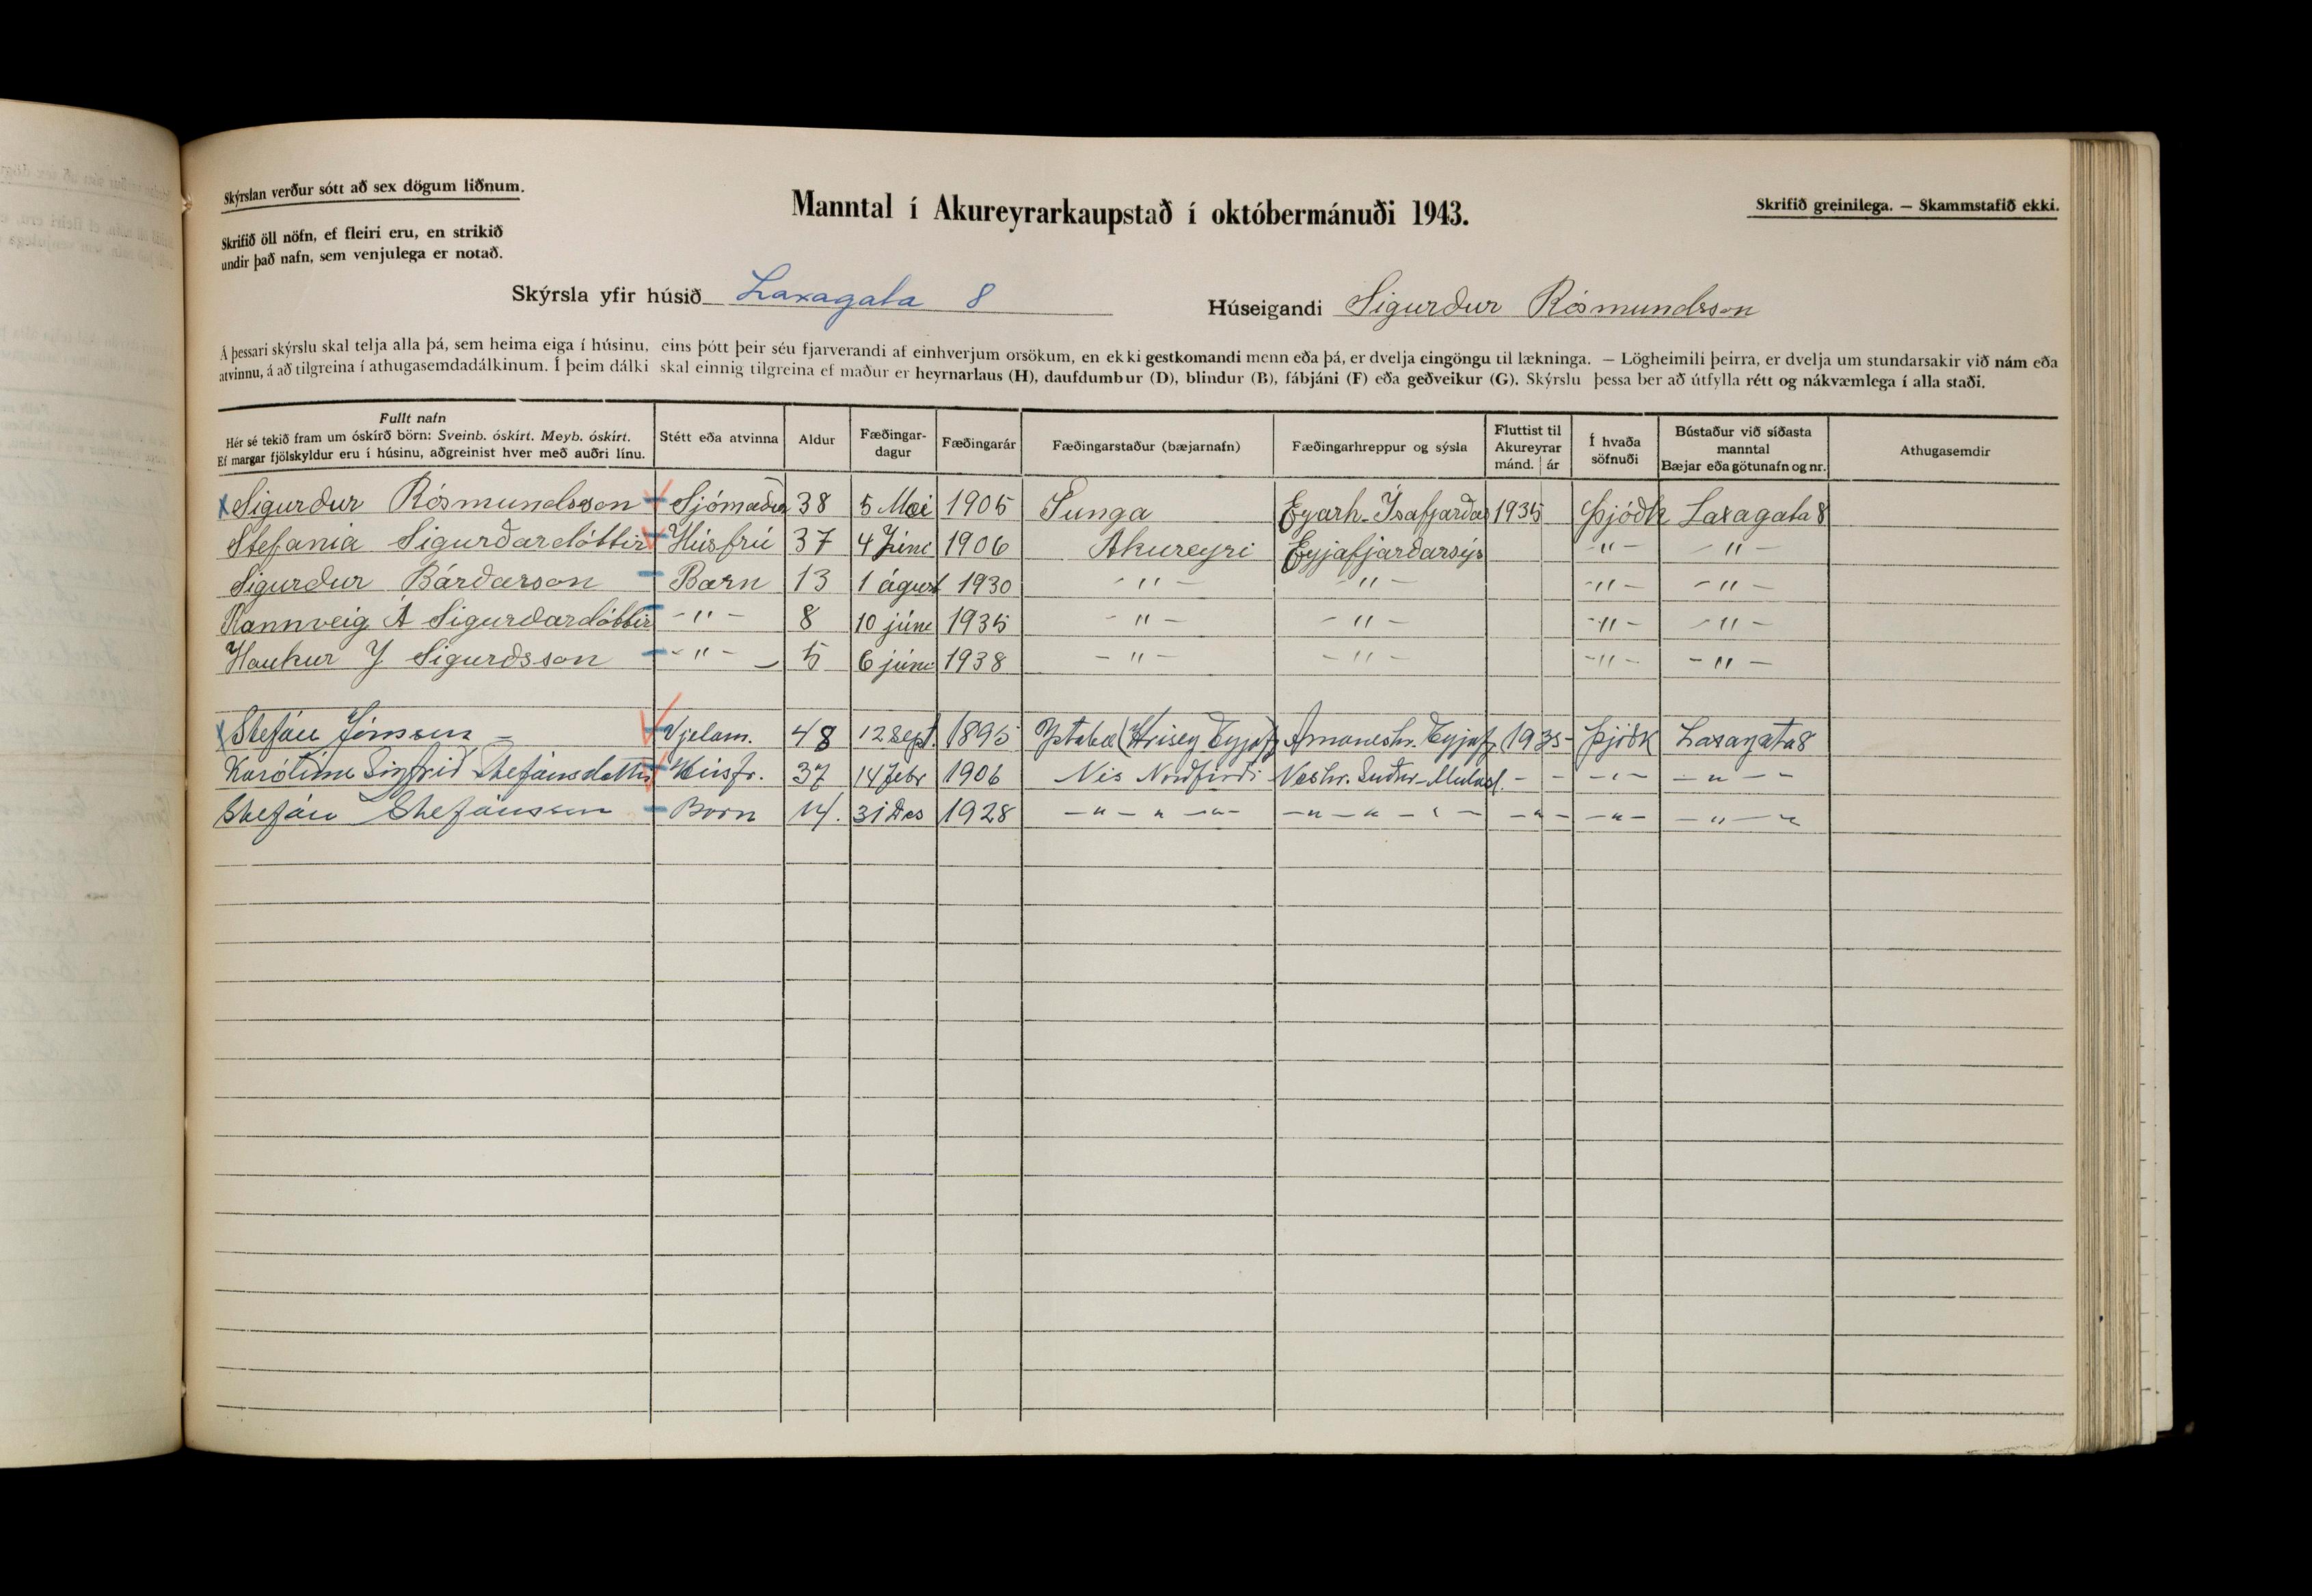 Skýrslan verður sótt að sex dögum liðnum.
Skrifið öll nöfn, ef fleiri eru, en strikið
undir það nafn, sem venjulega er notað.
Manntal í Akureyrarkaupstað í októbermánuði 1943.
Skrifið greinilega. — Skammstafið ekki.
Skýrsla yfir húsið Laxagata 8
Húseigandi Sigurður Rósmundsson
Á þessari skýrslu skal telja alla þá, sem heima eiga í húsinu, eins þótt þeir séu fjarverandi af einhverjum orsökum, en ekki gestkomandi menn eða þá, er dvelja eingöngu til lækninga. — Lögheimili þeirra, er dvelja um stundarsakir við nám eða
atvinnu, á að tilgreina í athugasemdadálkinum. Í þeim dálki skal einnig tilgreina ef maður er heyrnarlaus (H), daufdumbur (D), blindur (B), fábjáni (F) eða geðveikur (G). Skýrslu þessa ber að útfylla rétt og nákvæmlega í alla staði.
Fullt nafn
Hér sé tekið fram um óskírð börn: Sveinb. óskírt. Meyb. óskírt.
Ef margar fjölskyldur eru í húsinu, aðgreinist hver með auðri línu.
Stétt eða atvinna
Aldur
Fæðingar-
dagur
Fæðingarár
Fæðingarstaður (bæjarnafn)
Fæðingarhreppur og sýsla
Fluttist til
Akureyrar
mánd. | ár
Í hvaða
söfnuði
Bústaður við síðasta
manntal
Bæjar eða götunafn og nr.
Athugasemdir
x Sigurður Rósmundsson Sjómaður 38 5 Mai 1905 Tunga Eyarh. Ísafjarðar 1935 Þjóðk Laxagata 8
Stefania Sigurðardóttir Húsfrú 37 4 Júní 1906 Akureyri Eyjafjarðarsýs -"- -"-
Sigurður Bárðarson Barn 13 1 ágúst 1930 -"- -"- -"- -"-
Rannveig Á Sigurðardóttir -"- 8 10 júní 1935 -"- -"- -"- -"-
Haukur J Sigurðsson -"- 5 6 júní 1938 -"- -"- -"- -"-
x Stefán Jónsson Vjelam. 48 12 Sept. 1895 Ystabæ (Hrísey Eyjaf) Eyjafj. 1935 Þjóðk Laxagata 8
Karólína Sigfríð Stefánsdóttir Húsfr. 37 14 Febr 1906 Nes Norðfirði Neshr. Suður-Múlas. - - -"- -"-
Stefán Stefánsson Barn 14. 31 Des 1928 -"-"-"- -"-"-"- -"- -"- -"-"